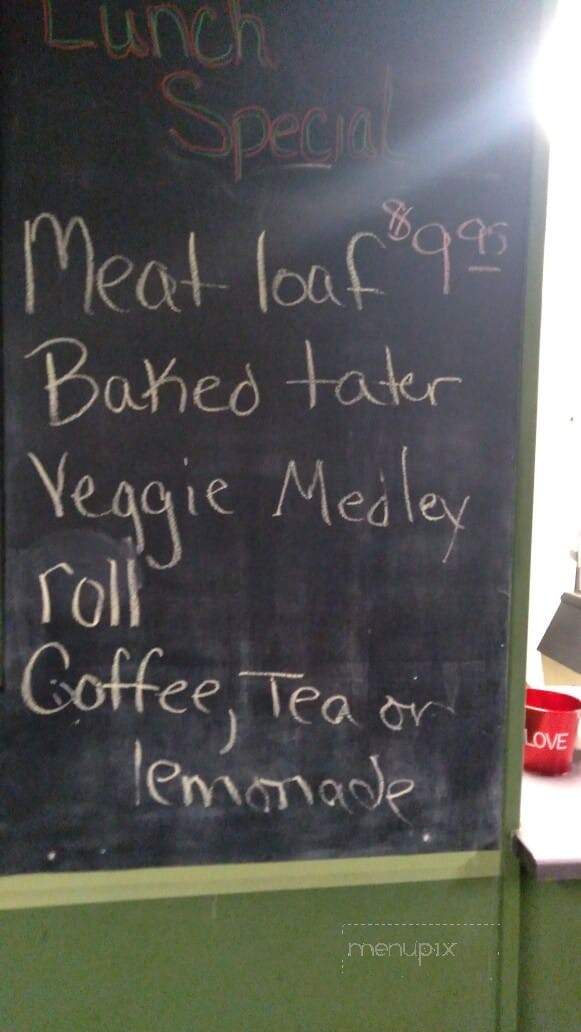 Lunch
Special
Meat loaf $9.95
Baked tater
Veggie Medley
roll
Coffee, Tea or
lemonade
LOVE
menupix